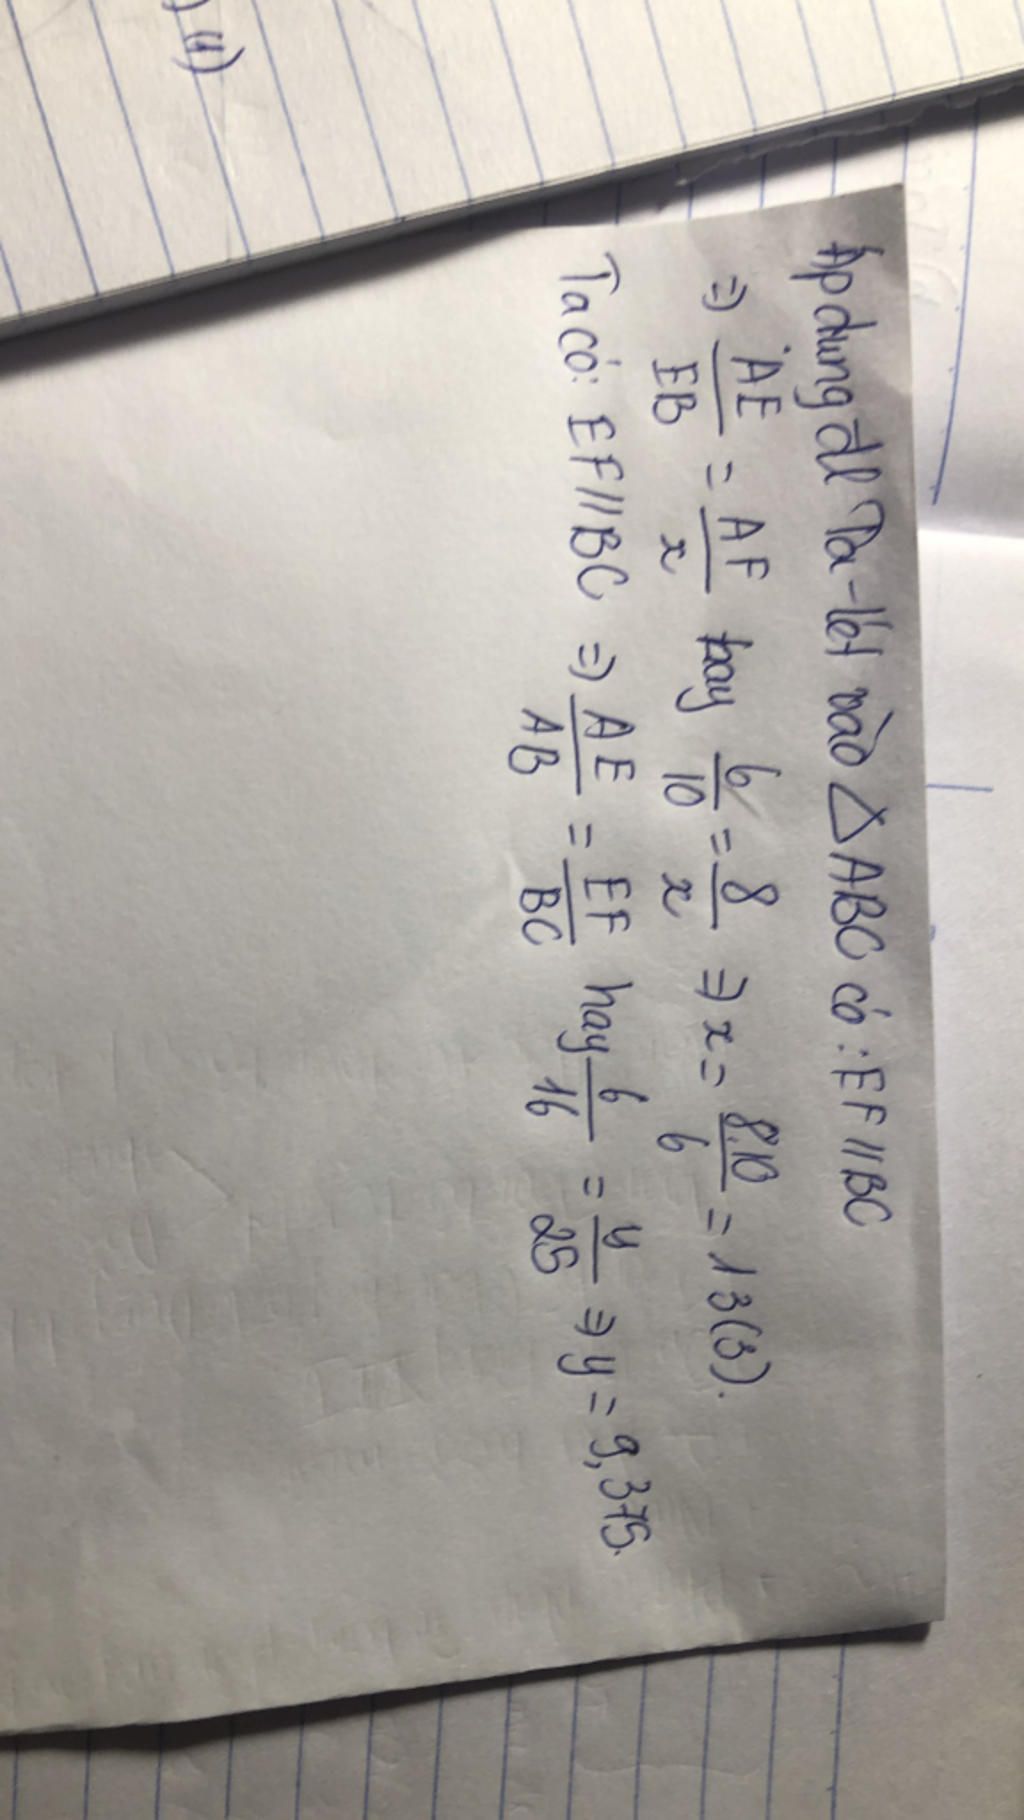 Áp dụng đl Ta-lét vào △ABC có: EF//BC
=> AE/EB = AF/x hay 6/10 = 8/x => x = 8.10/6 = 13(3).
Ta có: EF//BC => AE/AB = EF/BC hay 6/16 = y/25 => y = 9,375.